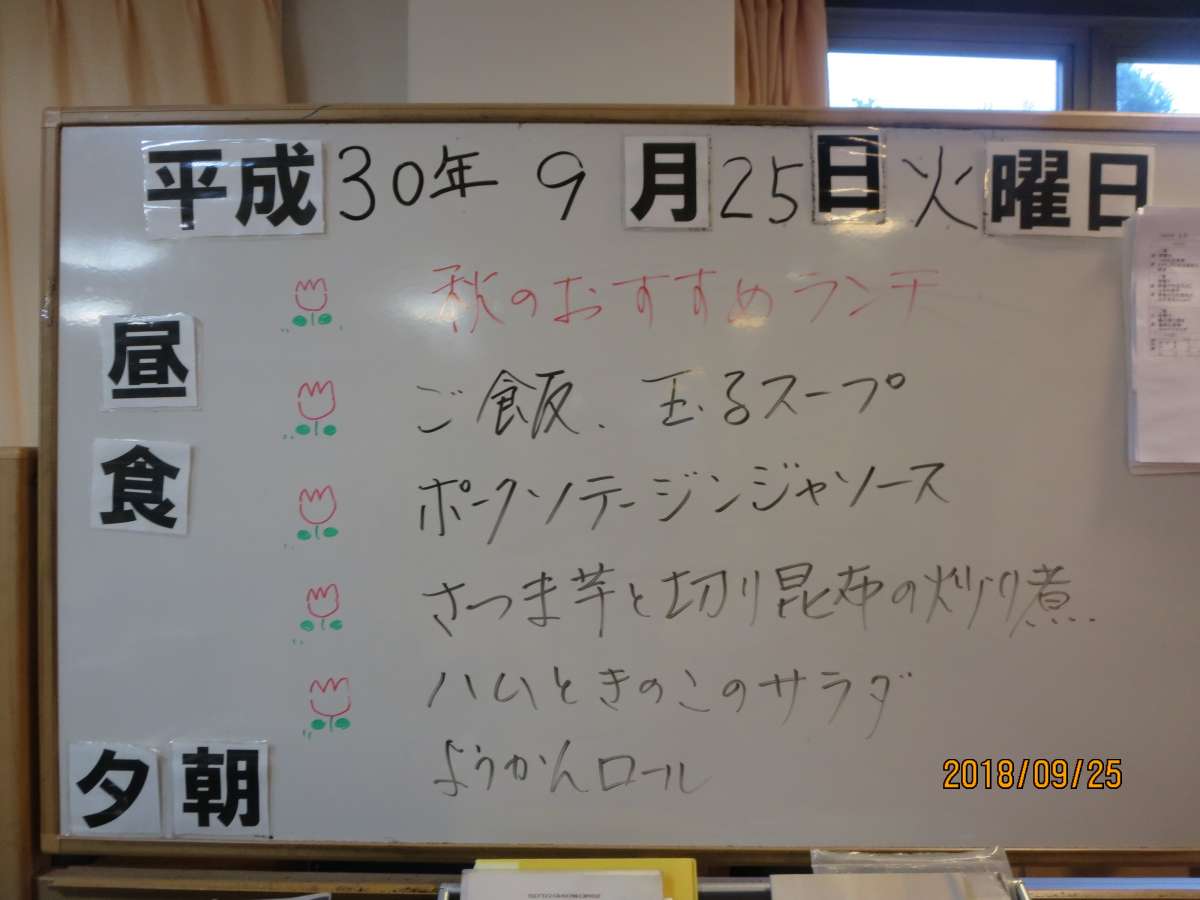 平成30年 9月25日火曜日
秋のおすすめランチ
昼食
ご飯、玉子スープ
ポークソテージンジャソース
さつま芋と切り昆布の炒り煮
ハムときのこのサラダ
ようかんロール
夕 朝
2018/09/25